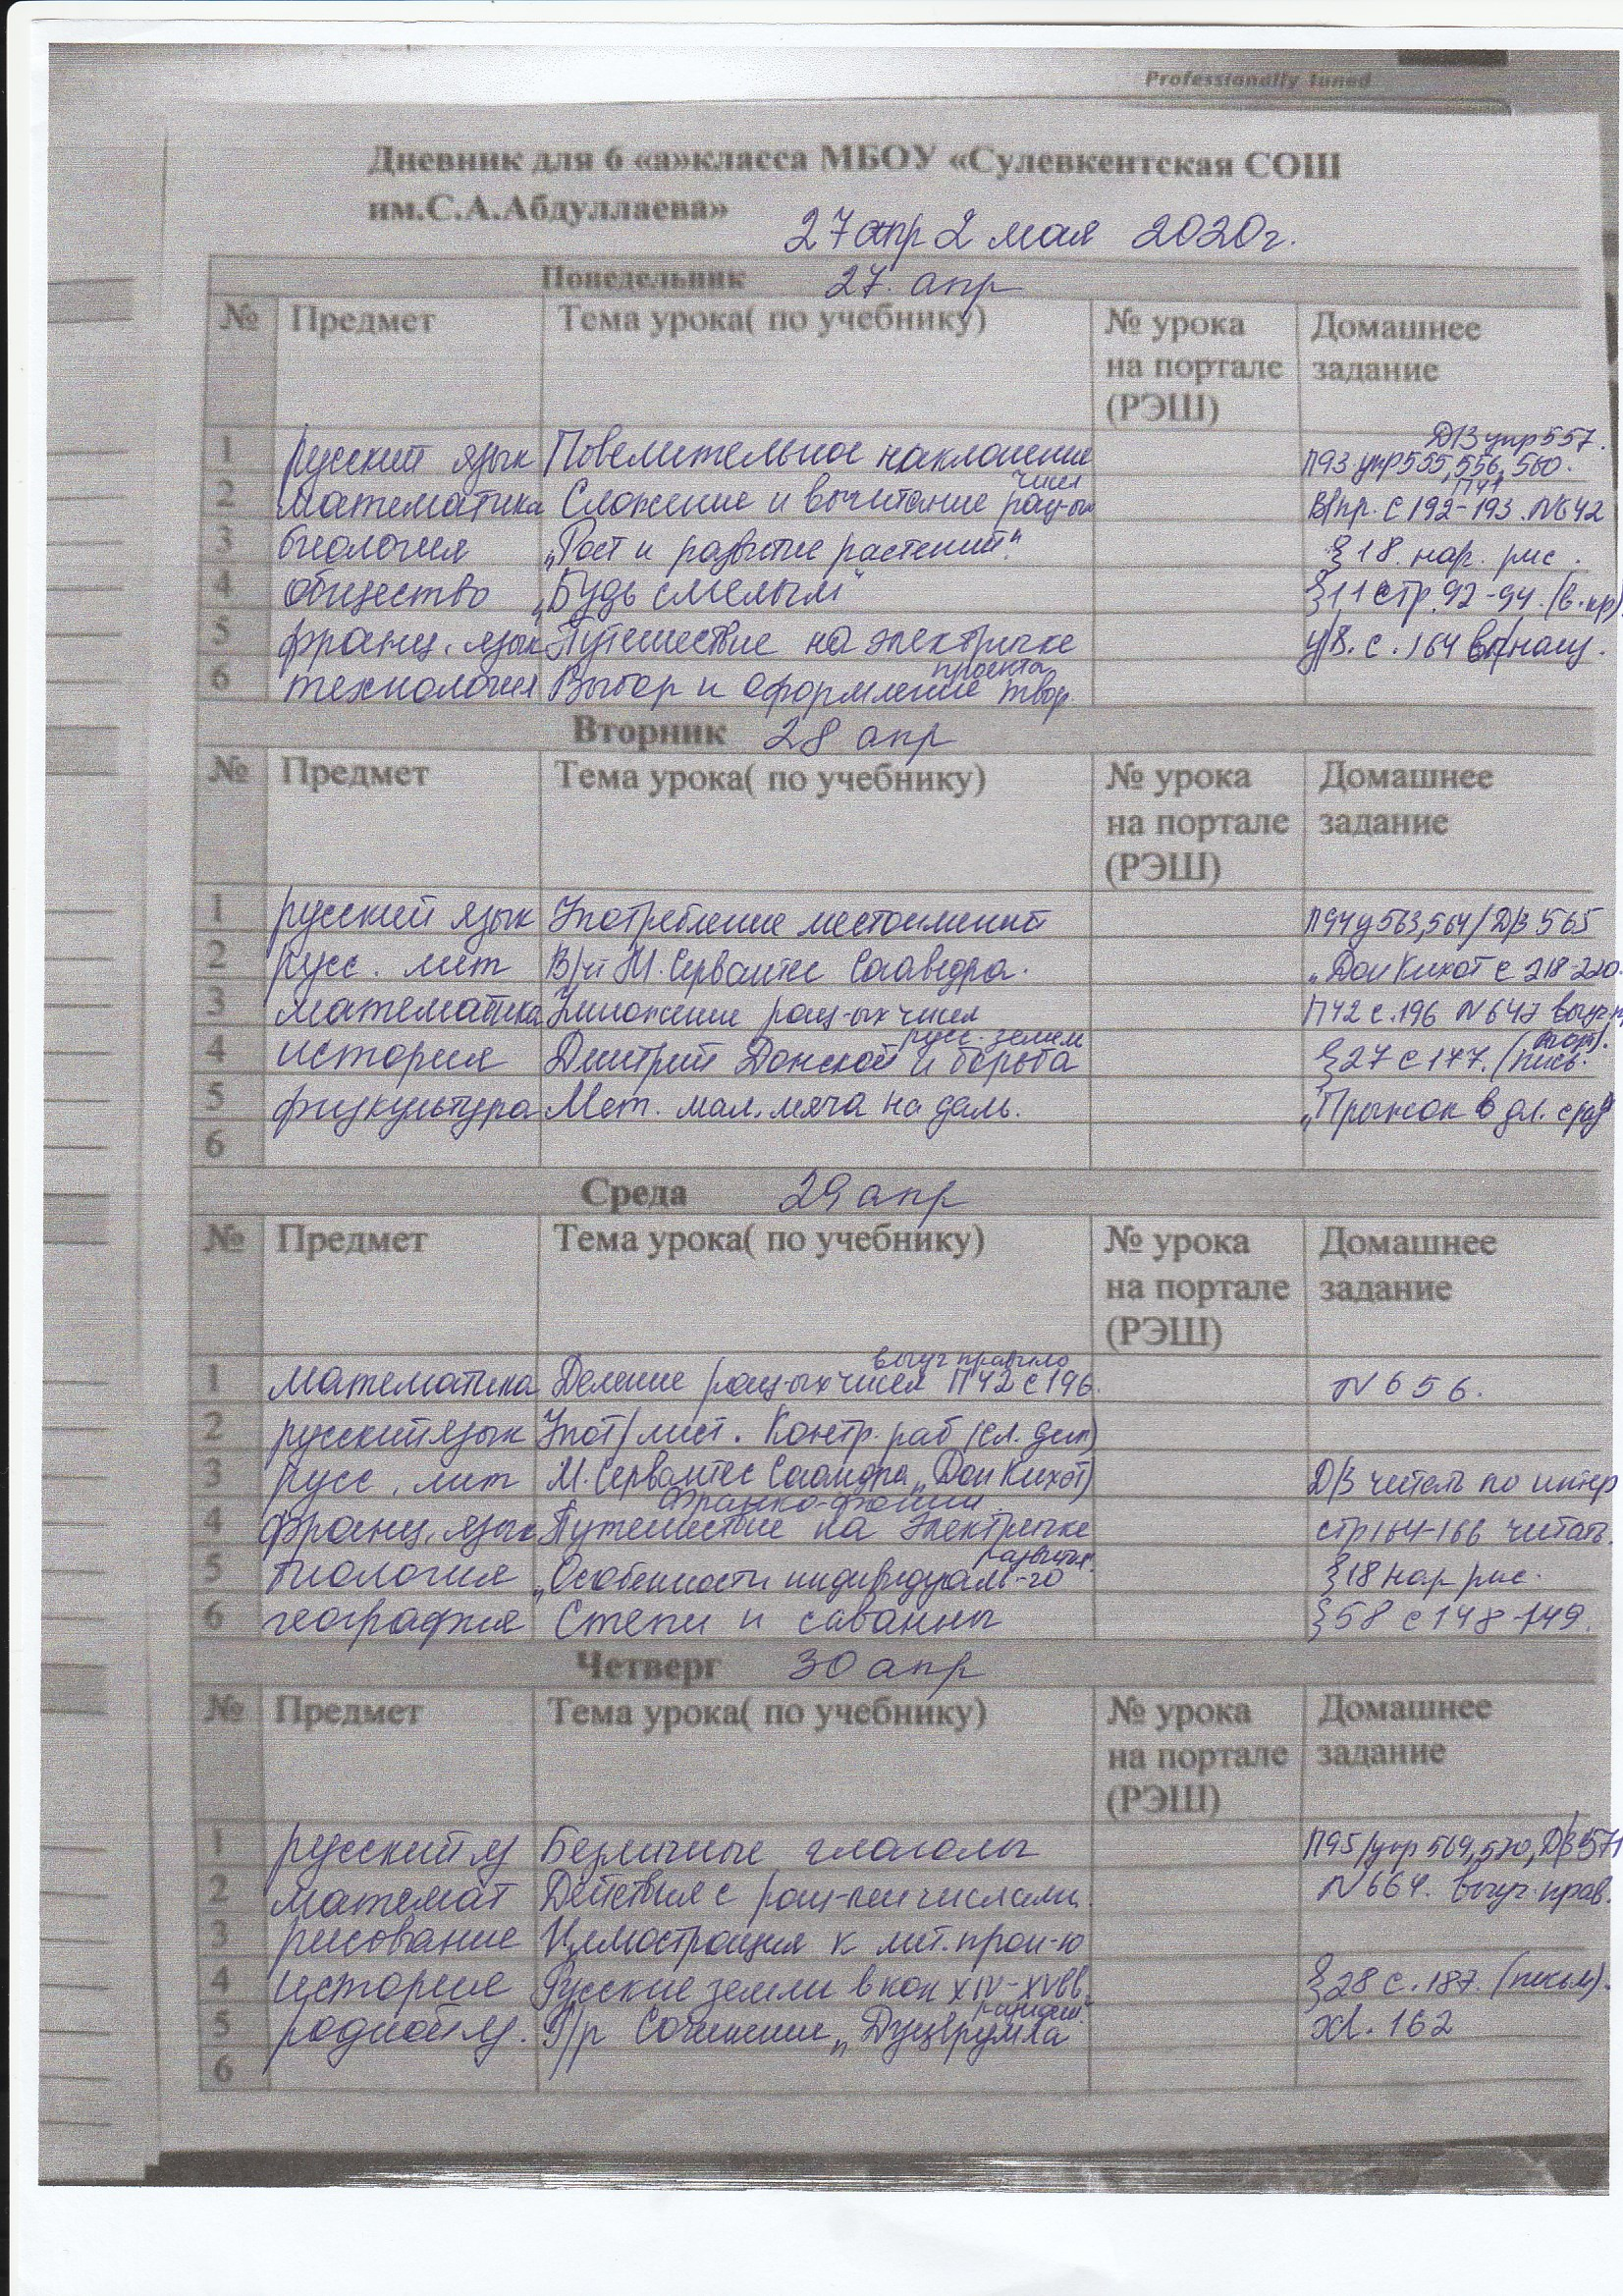 Professionally tuned
Дневник для 6 «а»класса МБОУ «Сулевкентская СОШ
им.С.А.Абдуллаева»
27 апр 2 мая 2020г.
Понедельник 27. апр
№ Предмет Тема урока( по учебнику) № урока на портале (РЭШ) Домашнее задание
1 русский язык Повелительное наклонение П93 упр 555, 556, 560. Д/З упр 557.
2 математика Сложение и вычитание рац-ых чисел В/пр. с 192-193. N642 П41
3 биология „Рост и развитие растений" § 18. нар. рис.
4 общество „Будь смелым" §11 стр. 92-94. (в. кр)
5 франц. язык Путешествие на электричке с. 164
6 технология Выбор и оформление твор. проекта
Вторник 28 апр
№ Предмет Тема урока( по учебнику) № урока на портале (РЭШ) Домашнее задание
1 русский язык Употребление местоимений П94 у 563, 564 / Д/З 565
2 русс. лит В/чт М. Сервантес Сааведра. „Дон Кихот с 218-220
3 математика Умножение рац-ых чисел П42 с. 196 N 647
4 история Дмитрий Донской и борьба русс. земель § 27 с 177. (письм.
5 физкультура Мет. мал. мяча на даль. „Прыжок в дл. с раз"
6
Среда 29 апр
№ Предмет Тема урока( по учебнику) № урока на портале (РЭШ) Домашнее задание
1 математика Деление рац-ых чисел П42 с 196. выуч правило N 656.
2 русский язык Упот/ . Контр. раб (сл. дик)
3 русс. лит М. Сервантес Сааведра „Дон Кихот) Д/З читать по интер
4 франц. язык Путешествие на электричке стр 164-166 читать.
5 биология „Особенности индивидуаль-го развития". § 18 нар рис.
6 география Степи и саванны § 58 с 148-149.
Четверг 30 апр
№ Предмет Тема урока( по учебнику) № урока на портале (РЭШ) Домашнее задание
1 русский яз Безличные глаголы П95 / упр 569, 570, Д/З 571
2 математ Действия с рац-ми числами. N 664. выуч. прав.
3 рисование Иллюстрация к лит. прои-ю
4 история Русские земли в кон XIV-XVвв. § 28 с. 187. (письм).
5 родной яз. Р/р Сочинение 162
6